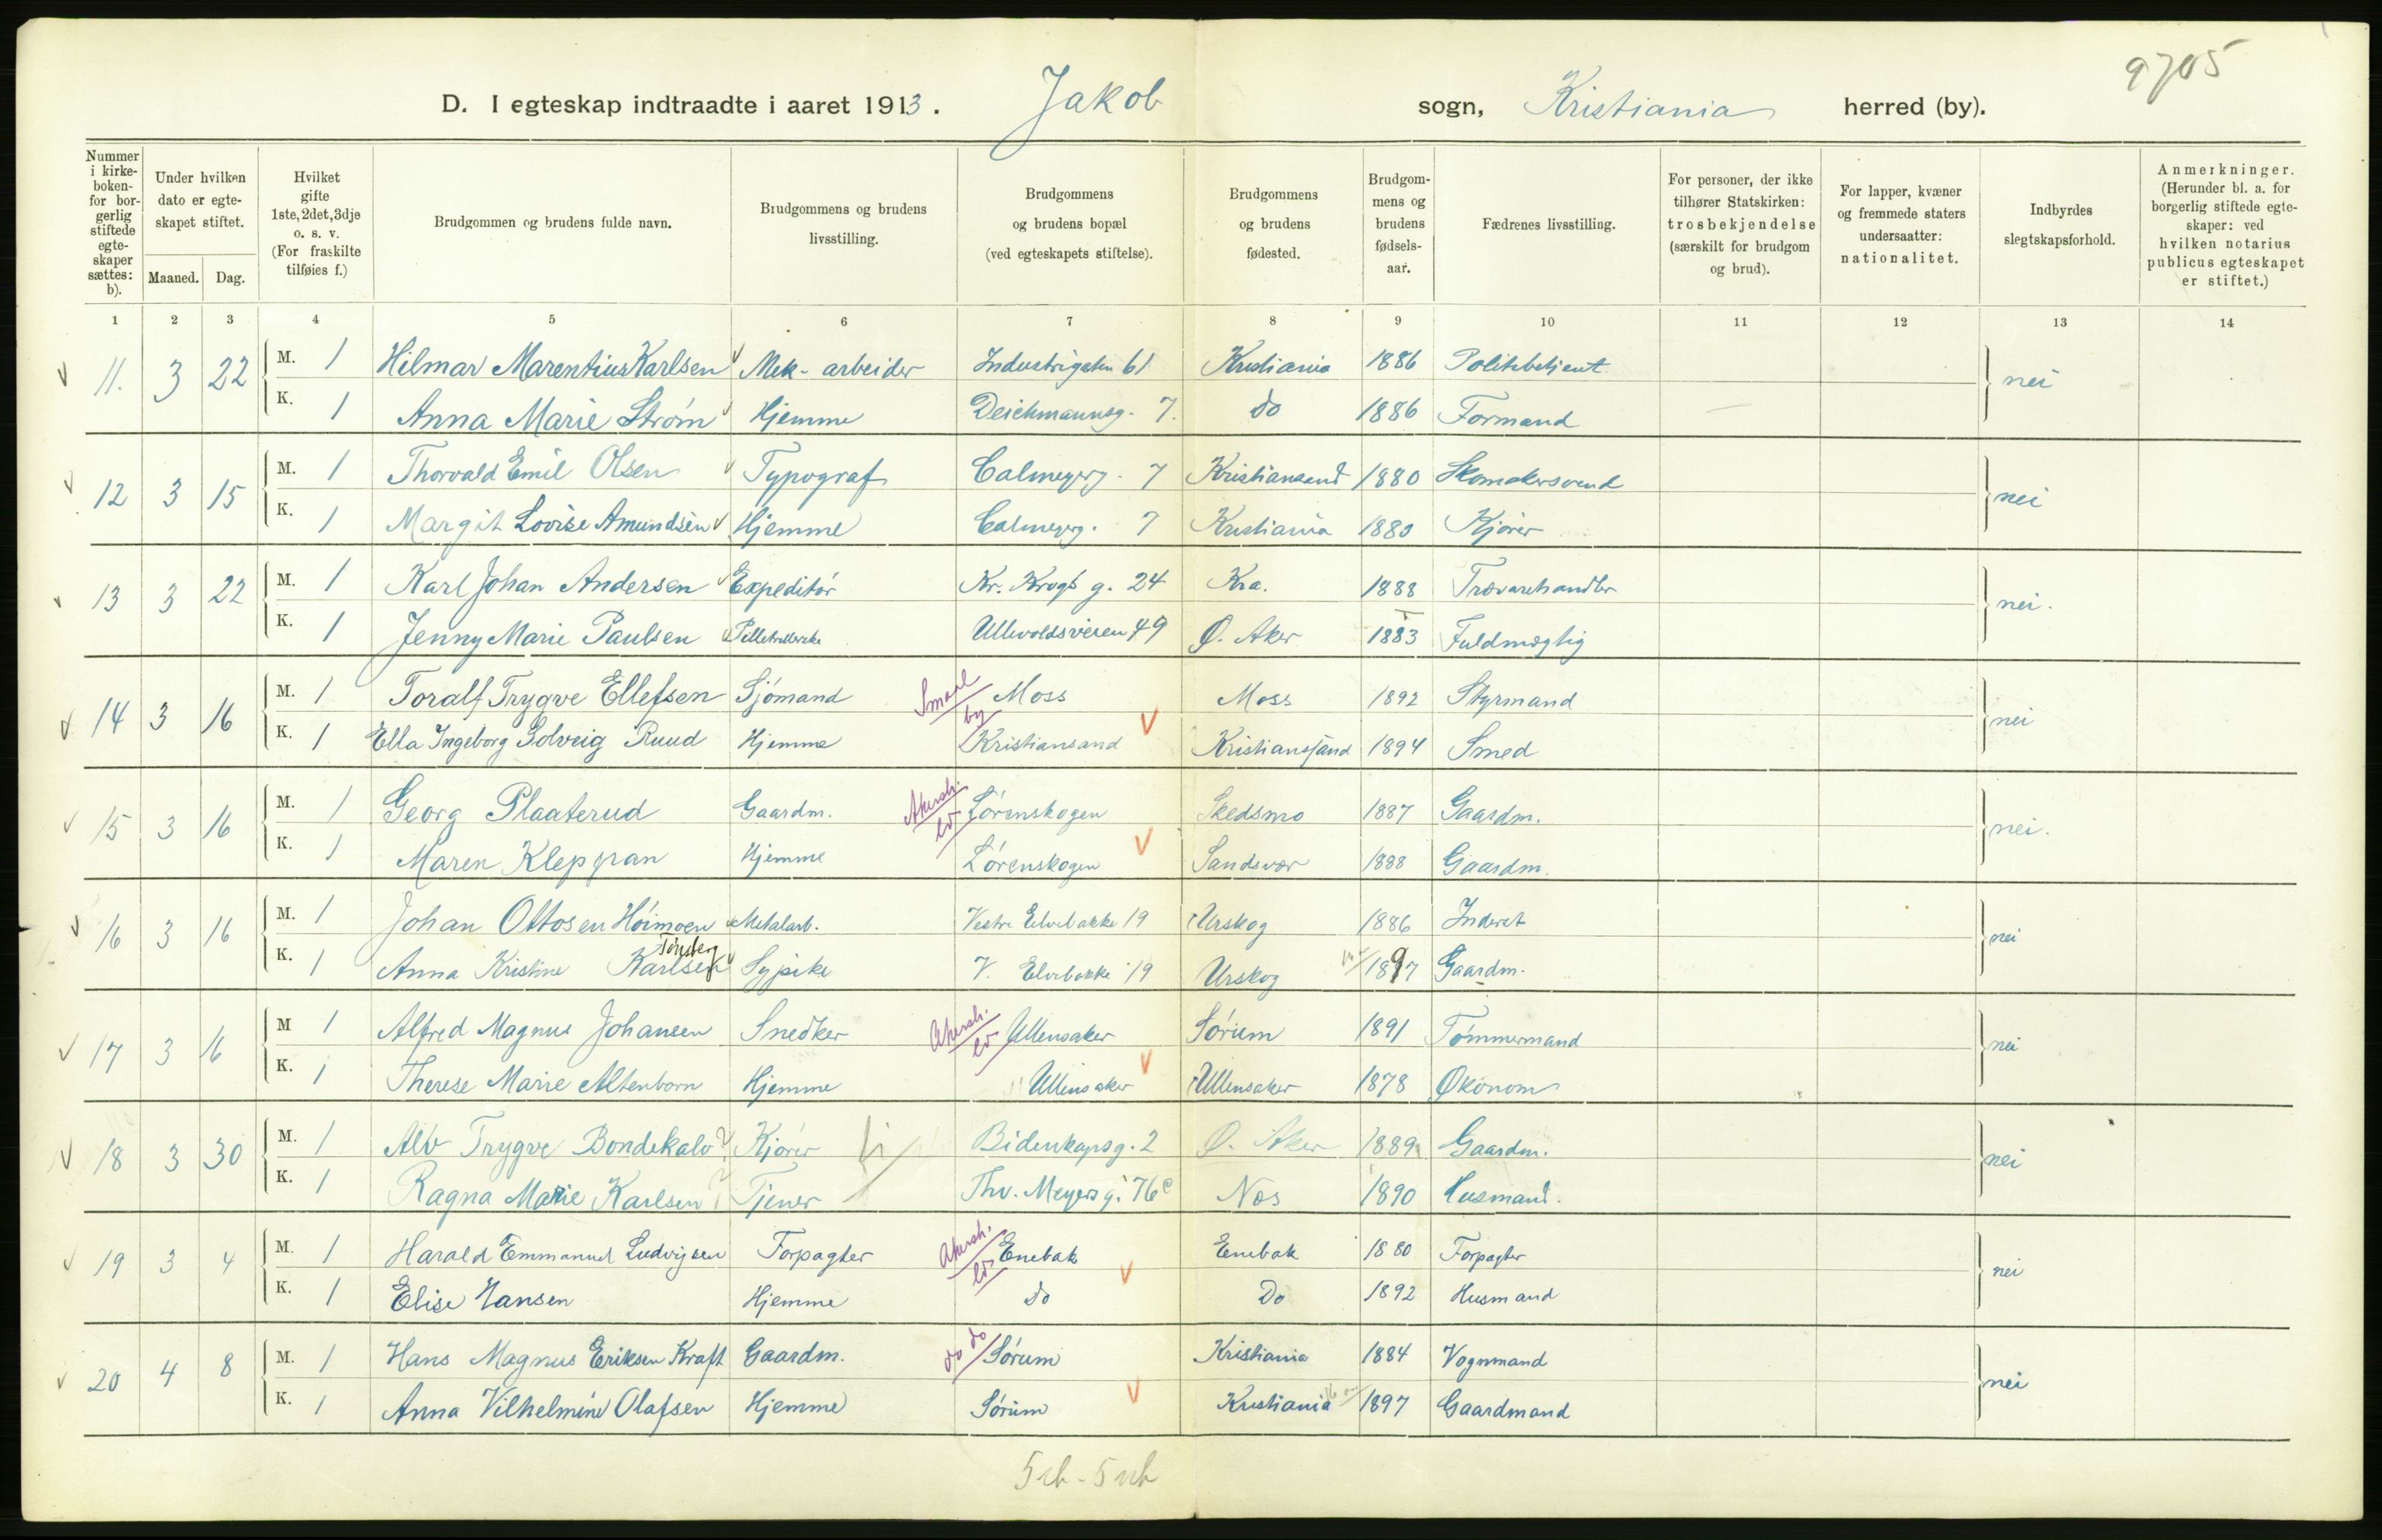 9705
D. I egteskap indtraadte i aaret 1913. Jakob sogn, Kristiania herred (by).
Nummer i kirkeboken- for borgerlig stiftede egteskaper sættes: b).
Under hvilken dato er egteskapet stiftet.
Maaned. Dag.
Hvilket gifte 1ste, 2det, 3dje o. s. v. (For fraskilte tilføies f.)
Brudgommen og brudens fulde navn.
Brudgommens og brudens livsstilling.
Brudgommens og brudens bopæl (ved egteskapets stiftelse).
Brudgommens og brudens fødested.
Brudgommens og brudens fødselsaar.
Fædrenes livsstilling.
For personer, der ikke tilhører Statskirken: trosbekjendelse (særskilt for brudgom og brud).
For lapper, kvæner og fremmede staters undersaatter: nationalitet.
Indbyrdes slegtskapsforhold.
Anmerkninger. (Herunder bl. a. for borgerlig stiftede egteskaper: ved hvilken notarius publicus egteskapet er stiftet.)
1 2 3 4 5 6 7 8 9 10 11 12 13 14
11. 3 22 M. 1 Hilmar Marentius Karlsen Mek- arbeider Industrigaten 61 Kristiania 1886 Politibetjent nei
K. 1 Anna Marie Strøm Hjemme Deichmannsg. 7. do 1886 Formand
12 3 15 M. 1 Thorvald Emil Olsen Typograf Calmeyerg. 7 Kristiansand 1880 Skomakersvend nei
K. 1 Margit Lovise Amundsen Hjemme Calmeyerg. 7 Kristiania 1880 Kjører
13 3 22 M. 1 Karl Johan Andersen Expeditør Kr. Krogs g. 24 Kra. 1888 Trævarehandler nei.
K. 1 Jenny Marie Paulsen Ullevoldsveien 49 Ø. Aker 1883 Fuldmægtig
14 3 16 M. 1 Toralf Trygve Ellefsen Sjømand Smaal by Moss Moss 1892 Styrmand nei
K. 1 Ella Ingeborg Solveig Ruud Hjemme Kristiansand Kristianssand 1894 Smed
15 3 16 M. 1 Georg Plaaterud Gaardm. Akersh. ld Lørenskogen Skedsmo 1887 Gaardm. nei.
K. 1 Maren Klepgran Hjemme Lørenskogen Sandsvær 1888 Gaardm.
16 3 16 M. 1 Johan Ottosen Høimoen Metalarb. Vestre Elvebakke 19 Urskog 1886 Inderst nei
Tønsberg
K. 1 Anna Kristine Karlsen Sypike V. Elvebakke 19 Urskog 1897 Gaardm.
17 3 16 M 1 Alfred Magnus Johansen Snedker Akersh. ld Ullensaker Sørum 1891 Tømmermand nei
K. 1 Therese Marie Altenborn Hjemme Ullensaker Ullensaker 1878 Økonom
18 3 30 M. 1 Alv Trygve Bondekalv? Kjører Bidenkapsg. 2 Ø. Aker 1889 Gaardm. nei
K. 1 Ragna Marie Karlsen ? Tjener Thv. Meyers g. 76c Nes 1890 Husmand.
19 3 4 M. 1 Harald Emmanuel Ludvigsen Forpagter Akersh. ld Enebak Enebak 1880 Forpagter nei
K. 1 Elise Hansen Hjemme do Do 1892 Husmand
20 4 8 M. 1 Hans Magnus Eriksen Kraft Gaardm. do do Sørum Kristiania 1884 Vognmand nei
K. 1 Anna Vilhelmine Olafsen Hjemme Sørum Kristiania 1897 Gaardmand